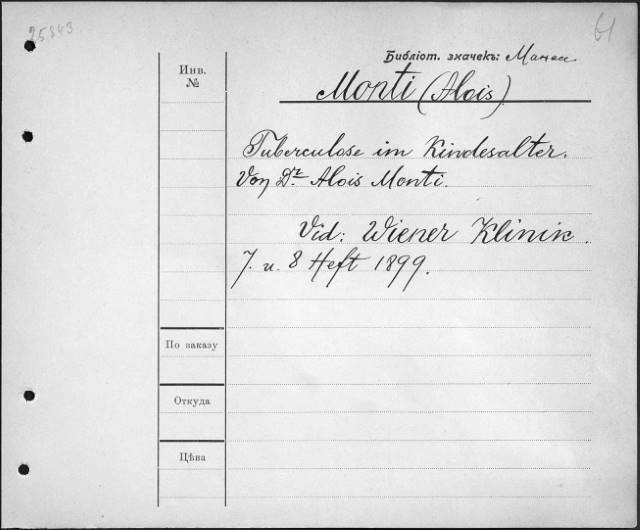 25843
61
Библіот. значекъ:
Инв.
№
Monti (Alois)
Tuberculose im Kindesalter.
Von Dr Alois Monti.
Vid: Wiener Klinik.
7. u. 8 Heft 1899.
По заказу
Откуда
Цѣна